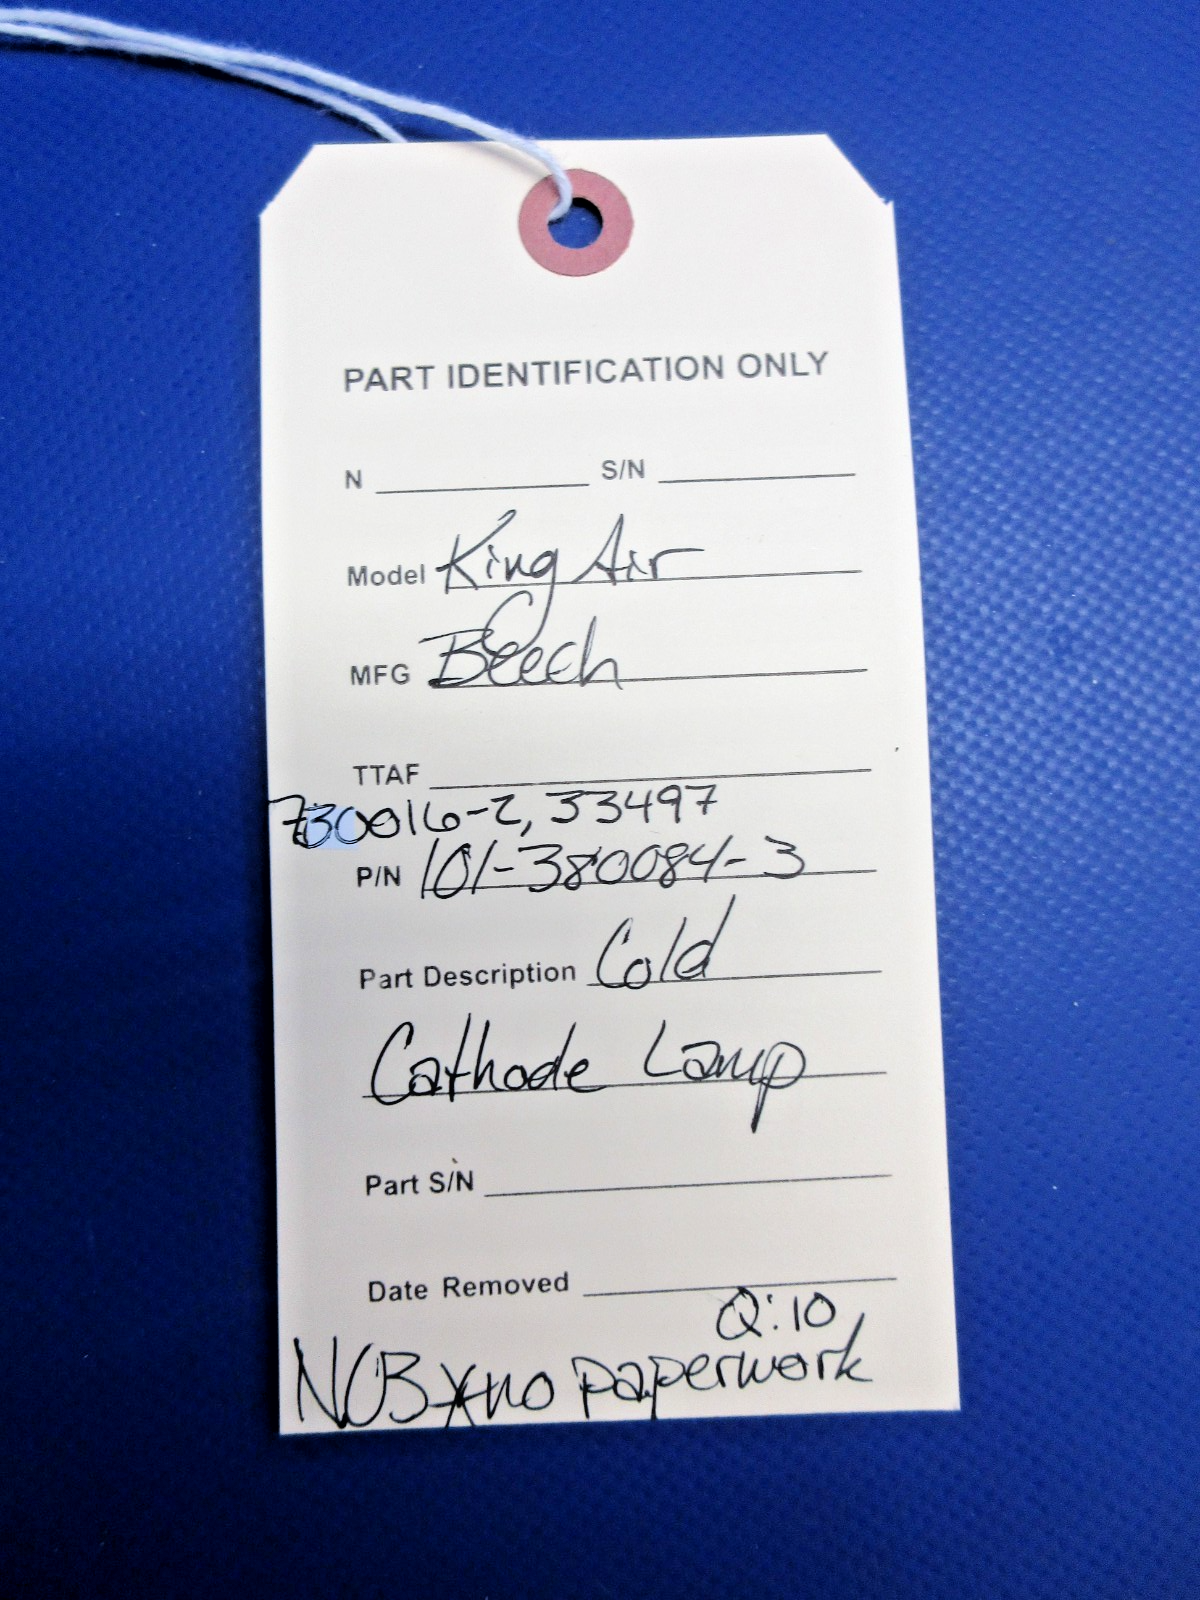 PART IDENTIFICATION ONLY
N S/N
Model King Air
MFG Beech
TTAF
730016-2, 33497
P/N 101-380084-3
Part Description Cold
Cathode Lamp
Part S/N
Date Removed
Q:10
NOB *no paperwork